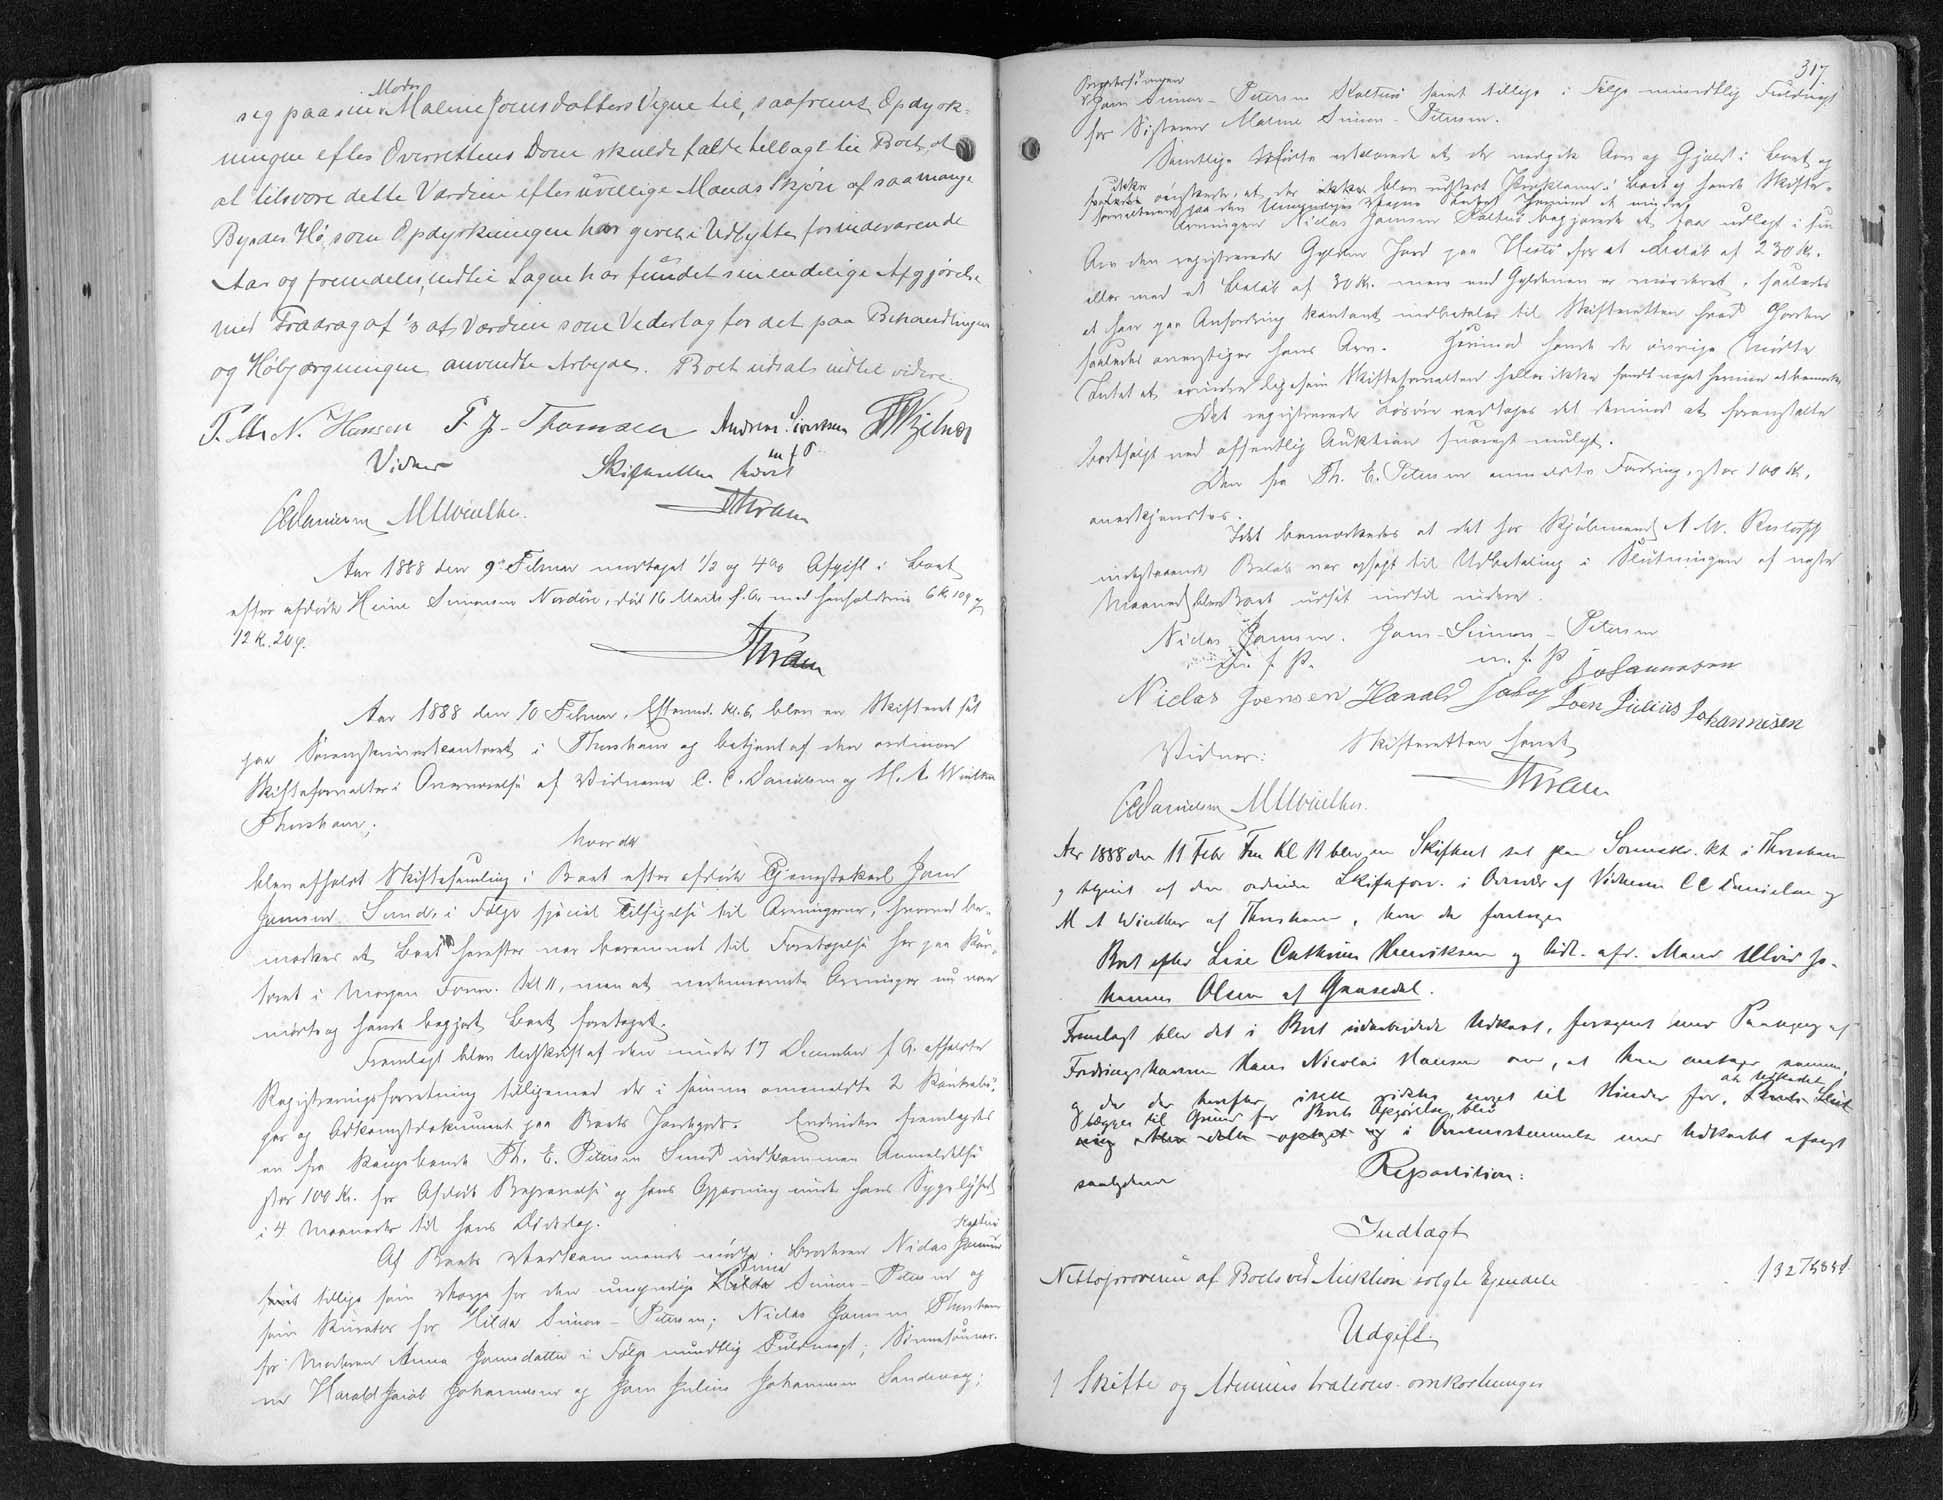 Moder
sig paa sin Malene Joensdatters Vegne til, saafremt Opdyrk-
ningen efter Overrettens Dom skulde falde tilbage til Boet, at
at tilsvare dette Værdien efter uvillige Mænds Skjøn af saamange
Byrder Hø, som Opdyrkningen har givet i Udbytte for indeværende
Aar og fremdeles, indtil Sagen har fundet sin endelige Afgjørelse
med Fradrag af ⅓ af Værdien som Vederlag for det paa Behandlingen
og Høbjærgningen anvendte Arbejde. Boet udsat indtil videre
P. M. N. Hansen P. J. Thomsen Andreas
m f P.
Vidner Skifteretten hævet
CCDanielsen MAWinther.
Aar 1888 den 9de Februar modtaget ½ og 4% Afgift i Boet
efter afdøde Heine Simonsen Nordøre, død 16 Marts f. A. med henholdsvis 6 K 10 ø og
12 K. 20 ø.
Aar 1888 den 10 Februar, Efterm. Kl. 6, blev en Skifteret sat
paa Sorenskriverkontoret i Thorshavn og betjent af den ordinære
Skifteforvalter i Overværelse af Vidnerne C. C. Danielsen og M. A. Winther
Thorshavn,
hvor da
blev afholdt Skiftesamling i Boet efter afdøde Tjenestekarl Joen
Joensen Sund, i Følge speciel Tilsigelse til Arvingerne, hvorved be-
mærkes at Boet herefter var berammet til Foretagelse her paa Kon-
toret i Morgen Form. Kl 11, men at nedennævnte Arvinger nu vare
mødte og havde begjært Boet foretaget.
Fremlagt blev Udskrift af den under 17 December f. A. afholdte
Registreringsforretning tilligemed de i samme ommeldte 2 Kontrabø-
ger og Adkomstdokument paa Boets Jordgods. Endvidere fremlagdes
en fra Kongsbonde Th. E. Petersen Sund indkommen Anmeldelse
stor 100 Kr. for Afdødes Begravelse og hans Opvarming under hans Sygeleje
i 4 Maaneder til hans Dødsdag.
Af Boets Vedkommende mødte: Broderen Niclas Joensen
Kaltbak
samt tillige som Værge for den umyndige Hilda Simon-Petersen og
som Kurator for Hilda Simon-Petersen; Niclas Joensen Thorshavn
for Moderen Anna Joensdatter i Følge mundtlig Fuldmagt; Sønnesønner-
ne Harald Jacob Johannesen og Joen Julius Johannesen Sandevaag;
317.
Søstersønnen
Joen Simon-Petersen Kaltbak samt tillige i Følge mundtlig Fuldmagt
for Søsteren Malene Simon-Petersen.
Samtlige Mødte erklærede at de vedgik Arv og Gjæld i Boet og
ønskede, at der ikke blev udstedt Proklama i Boet og havde Skifte-
forvalteren paa den Umyndiges Vegne Intet herimod at erindre
Arvingen Niclas Joensen Kaltbak begjærede at faa udlagt i sin
Arv den registrerede Gylden Jord paa Hestø for et Beløb af 230 Kr.
eller med et Beløb af 30 Kr. mere end Gyldenen er vurderet, saaledes
at han paa Anfordring kontant indbetaler til Skifteretten hvad Jorden
saaledes overstiger hans Arv. Herimod havde de øvrige Mødte
Intet at erindre ligesom Skifteforvalteren heller ikke fandt noget herimod at bemærke
Det registrerede Løsøre vedtoges det derimod at foranstalte
bortsolgt ved offentlig Auktion snarest muligt.
Den fra Th. E. Petersen anmeldte Fordring, stor 100 Kr.
anerkjendtes.
Idet bemærkedes at det hos Kjøbmand
indestaaende Beløb var opsagt til Udbetaling i Slutningen af næste
Maaned, blev Boet udsat indtil videre.
Niclas Joensen. Joen-Simon-Petersen
m. f. P. m. f. P
Niclas Joensen Harald Jakop Johannesen
Joen Julius Johannesen
Vidner: Skifteretten hævet
CCDanielsen MAWinther.
Aar 1888 den 11 Febr Fm Kl 11 blev en Skifteret sat paa Sorenskr. kt i Thorshavn
og betjent af den ordinære Skifteforv. i Overvær af Vidnerne CC Danielsen og
M A Winther af Thorshavn, hvor da foretoges
Boet efter Lise Cathrine Henriksen og tidl. afd. Mand Jo-
hannes Olsen af Gaasedal.
Fremlagt blev det i Boet udarbejdede Udkast, forsynet med Paategning af
Fordringshaveren Hans Nicolai Hansen om, at han antager samme,
og da der herefter ikke vides noget til Hinder for,
at Udkastet
lægges til Grund for Boets Opgjørelse, blev
i Overensstemmelse med Udkastet afsagt
saalydende Repartition:
Indtægt
Nettoprovenu af Boets ved Auktion solgte Ejendele 132 K 88 Ø
Udgift.
1 Skifte og Administrations-omkostninger